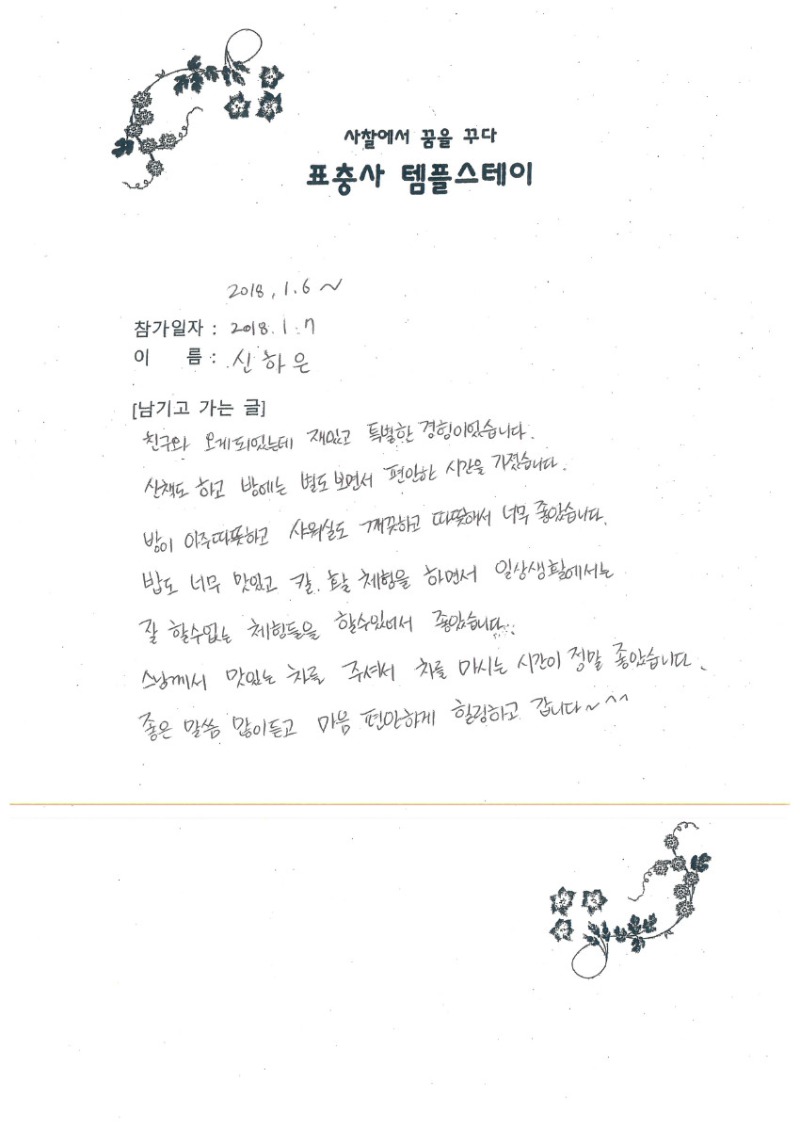 사찰에서 꿈을 꾸다
표충사 템플스테이
2018. 1. 6 ~
참가일자 : 2018. 1. 7
이 름 : 신하은
[남기고 가는 글]
친구와 오게되었는데 재밌고 특별한 경험이었습니다.
산책도 하고 밤에는 별도 보면서 편안한 시간을 가졌습니다.
방이 아주따뜻하고 샤워실도 깨끗하고 따뜻해서 너무 좋았습니다.
밥도 너무 맛있고 활 체험을 하면서 일상생활에서는
잘 할수없는 체험들을 할수있어서 좋았습니다.
스님께서 맛있는 차를 주셔서 차를 마시는 시간이 정말 좋았습니다.
좋은 말씀 많이듣고 마음 편안하게 힐링하고 갑니다~ ^^